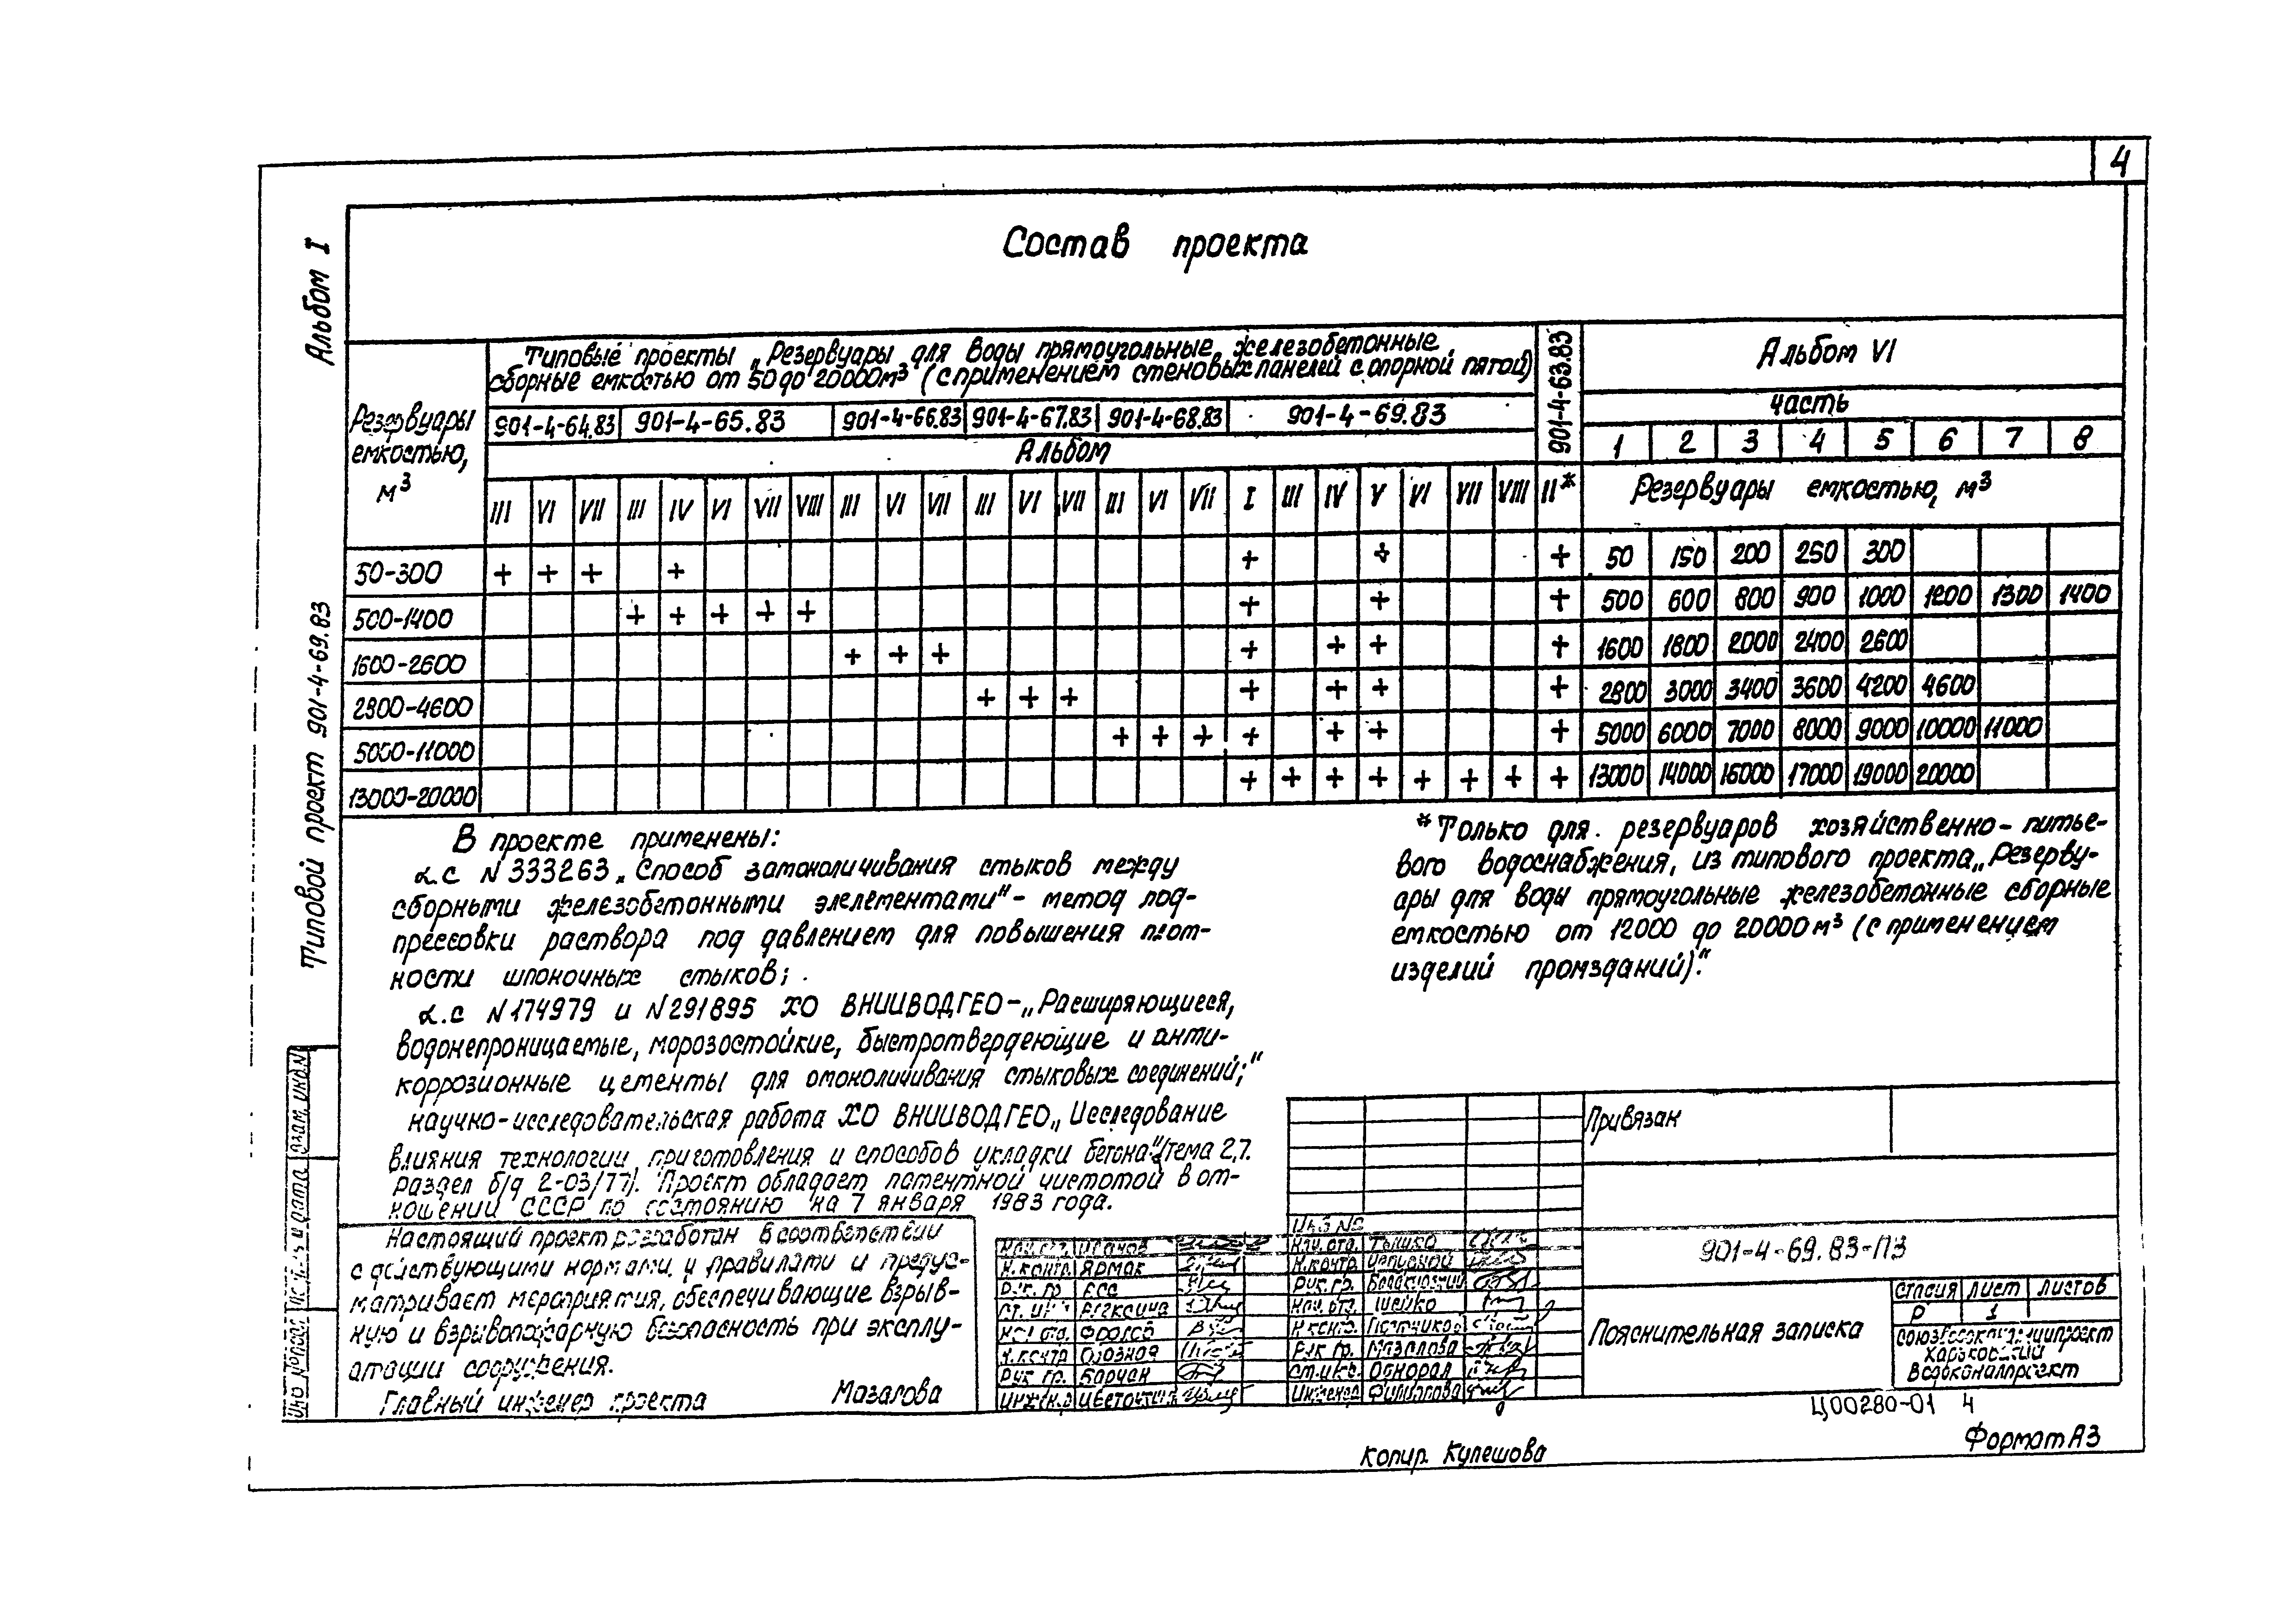 4
Альбом I
Типовой проект 901-4-69.83
Состав проекта
Резервуары емкостью, м³
Типовые проекты „Резервуары для воды прямоугольные железобетонные
сборные емкостью от 50 до 20000м³ (с применением стеновых панелей с опорной пятой)
901-4-64.83 901-4-65.83 901-4-66.83 901-4-67.83 901-4-68.83 901-4-69.83
901-4-63.83
Альбом
III VI VII III IV VI VII VIII III VI VII III VI VII III VI VII I III IV V VI VII VIII II*
Альбом VI
часть
1 2 3 4 5 6 7 8
Резервуары емкостью, м³
50-300 + + + + + + + 50 150 200 250 300
500-1400 + + + + + + + + 500 600 800 900 1000 1200 1300 1400
1600-2600 + + + + + + + 1600 1800 2000 2400 2600
2800-4600 + + + + + + + 2800 3000 3400 3600 4200 4600
5000-11000 + + + + + + + 5000 6000 7000 8000 9000 10000 11000
13000-20000 + + + + + + + + 13000 14000 16000 17000 19000 20000
В проекте применены:
а.с N 333263 „Способ замоноличивания стыков между
сборными железобетонными элелементами“ - метод под-
прессовки раствора под давлением для повышения плот-
ности шпоночных стыков;
а.с N174979 и N291895 ХО ВНИИВОДГЕО-„Расширяющиеся,
водонепроницаемые, морозостойкие, быстротвердеющие и анти-
коррозионные цементы для омоноличивания стыковых соединений;“
научно-исследовательская работа ХО ВНИИВОДГЕО „Исследование
влияния технологии приготовления и способов укладки бетона“/тема 2.7.
раздел б/д 2-03/77). Проект обладает патентной чистотой в от-
ношении СССР по состоянию на 7 января 1983 года.
*Только для резервуаров хозяйственно-питье-
вого водоснабжения, из типового проекта „Резерву-
ары для воды прямоугольные железобетонные сборные
емкостью от 12000 до 20000м³ (с применением
изделий промзданий)“.
Настоящий проект разработан в соответствии
с действующими нормами и правилами и предус-
матривает мероприятия, обеспечивающие взрыв-
ную и взрывопожарную безопасность при эксплу-
атации сооружения.
Главный инженер проекта Мазалова
Взам. инв. N
Подп. и дата
Инв N подл
Нач. отд. Иванов
Н.контр. Ярмак
Рук. гр.
Ст. инж.
Нач. отд. Фролов
Н.контр.
Рук. гр. Барчан
Инжен.
Инв №
Нач. отд.
Н.контр.
Рук. гр.
Нач. отд. Шейко
Н контр. Плотников
Рук. гр. Мазалова
Ст. инж. Однорал
Инженер Филиппова
Привязан
901-4-69.83-ПЗ
Пояснительная записка
Стадия Лист Листов
Р 1
Союзводоканалниипроект
Харьковский
Водоканалпроект
Ц00280-01 4
Копир. Кулешова
Формат А3